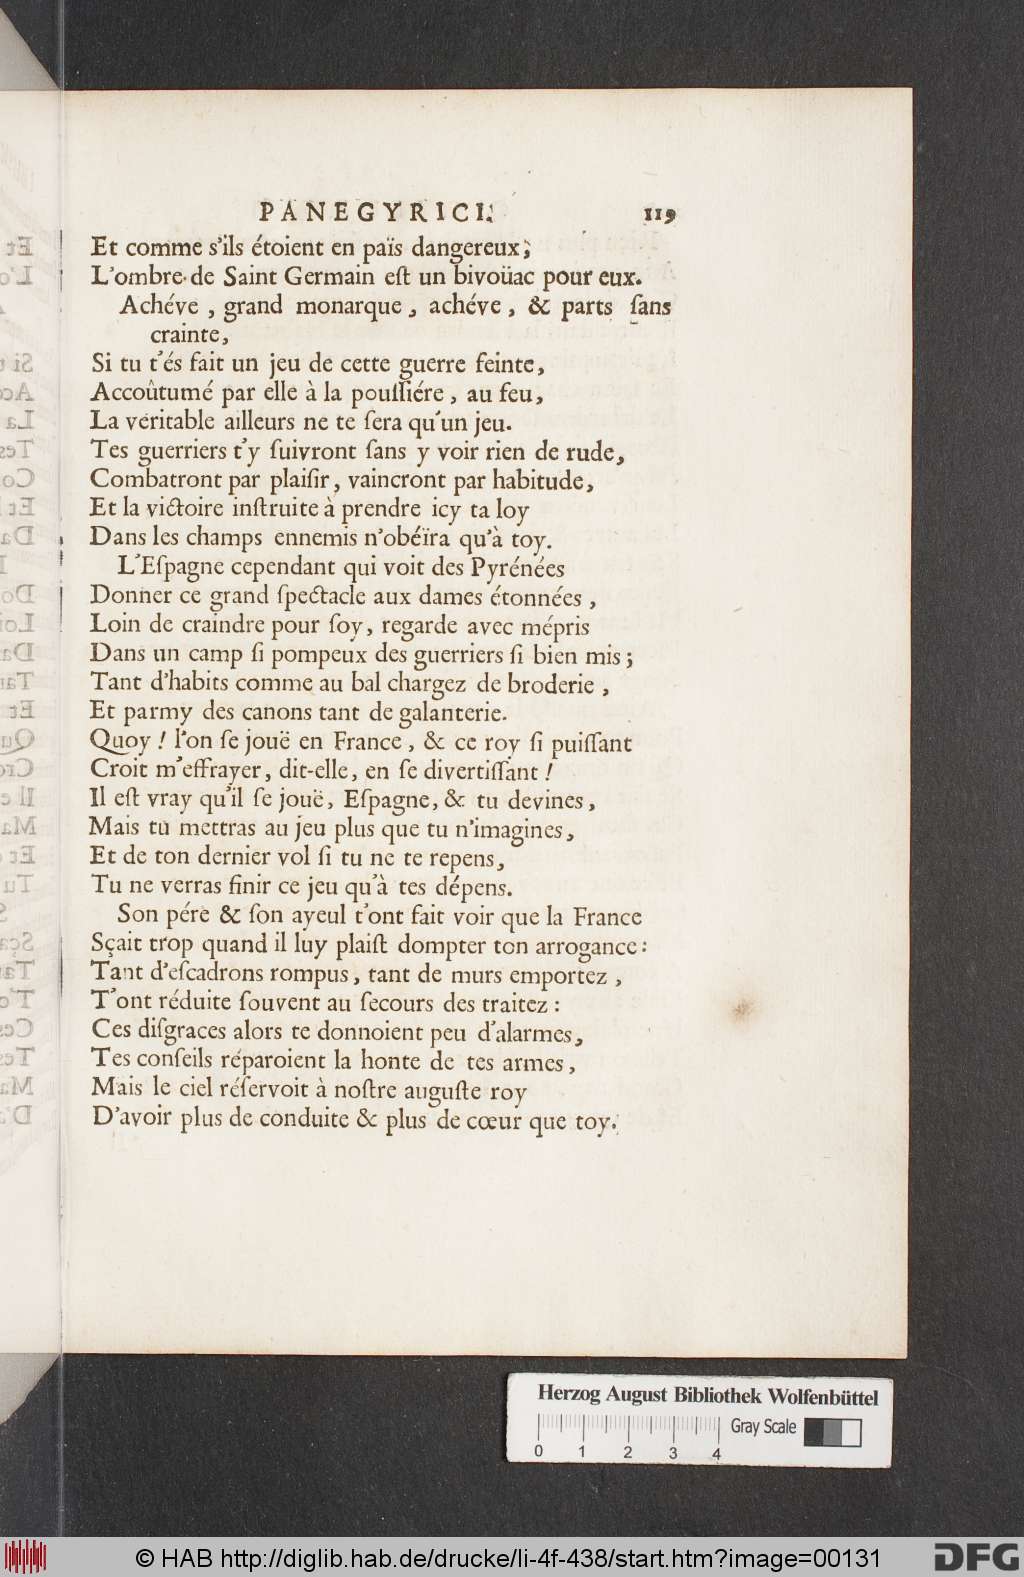 PANEGYRICI. 119
Et comme s'ils étoient en païs dangereux;
L'ombre de Saint Germain eſt un bivoüac pour eux.
Achéve, grand monarque, achéve, & parts ſans
crainte,
Si tu t'és fait un jeu de cette guerre feinte,
Accoûtumé par elle à la pouſſiére, au feu,
La véritable ailleurs ne te ſera qu'un jeu.
Tes guerriers t'y ſuivront ſans y voir rien de rude,
Combatront par plaiſir, vaincront par habitude,
Et la victoire inſtruite à prendre icy ta loy
Dans les champs ennemis n'obéïra qu'à toy.
L'Eſpagne cependant qui voit des Pyrénées
Donner ce grand ſpectacle aux dames étonnées,
Loin de craindre pour ſoy, regarde avec mépris
Dans un camp ſi pompeux des guerriers ſi bien mis;
Tant d'habits comme au bal chargez de broderie,
Et parmy des canons tant de galanterie.
Quoy! l'on ſe jouë en France, & ce roy ſi puiſſant
Croit m'effrayer, dit-elle, en ſe divertiſſant!
Il eſt vray qu'il ſe jouë, Eſpagne, & tu devines,
Mais tu mettras au jeu plus que tu n'imagines,
Et de ton dernier vol ſi tu ne te repens,
Tu ne verras finir ce jeu qu'à tes dépens.
Son pére & ſon ayeul t'ont fait voir que la France
Sçait trop quand il luy plaiſt dompter ton arrogance:
Tant d'eſcadrons rompus, tant de murs emportez,
T'ont réduite ſouvent au ſecours des traitez:
Ces diſgraces alors te donnoient peu d'alarmes,
Tes conſeils réparoient la honte de tes armes,
Mais le ciel réſervoit à noſtre auguſte roy
D'avoir plus de conduite & plus de cœur que toy.
Herzog August Bibliothek Wolfenbüttel
Gray Scale
0 1 2 3 4
© HAB http://diglib.hab.de/drucke/li-4f-438/start.htm?image=00131 DFG